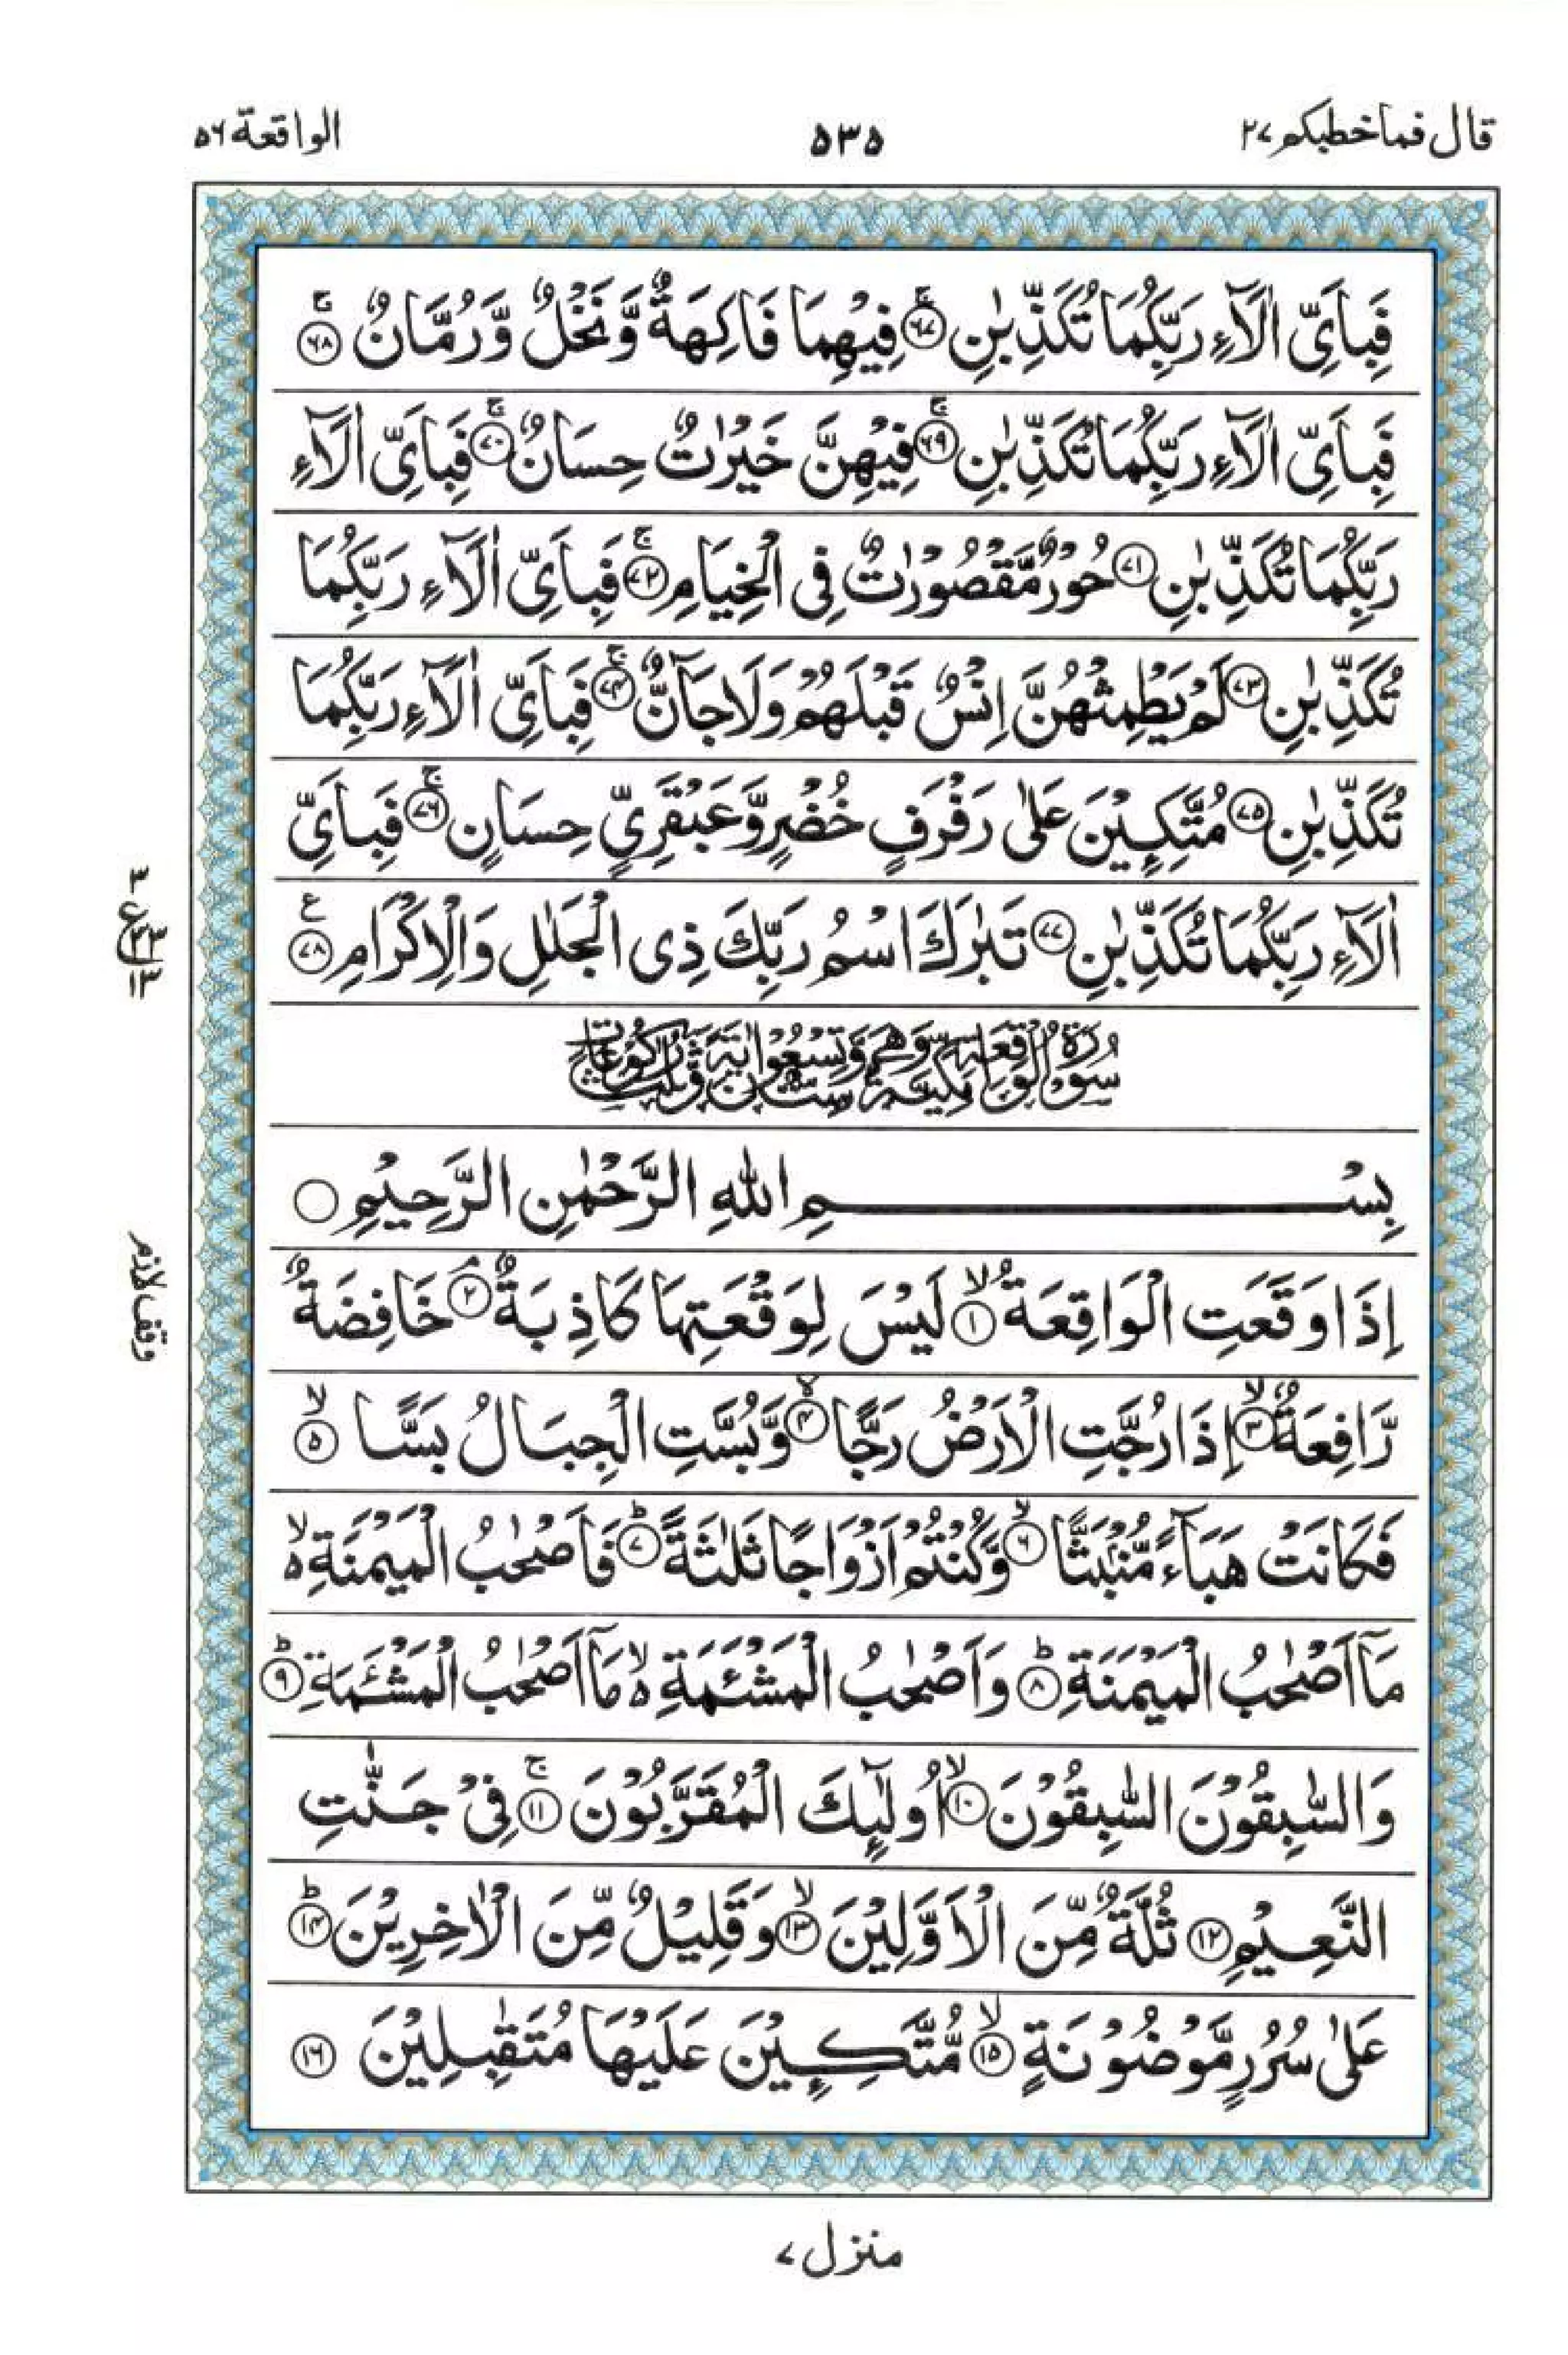 قال فماخطبكم ٢٧
٥٣٥
الواقعة ٥٦
فَبِاَىِّ اٰلَآءِ رَبِّكُمَا تُكَذِّبٰنِ ۚ﴿٦٧﴾ فِيْهِمَا فَاكِهَةٌ وَّنَخْلٌ وَّرُمَّانٌ ۚ﴿٦٨﴾
فَبِاَىِّ اٰلَآءِ رَبِّكُمَا تُكَذِّبٰنِ ۚ﴿٦٩﴾ فِيْهِنَّ خَيْرٰتٌ حِسَانٌ ۚ﴿٧٠﴾ فَبِاَىِّ اٰلَآءِ
رَبِّكُمَا تُكَذِّبٰنِ ﴿٧١﴾ حُوْرٌ مَّقْصُوْرٰتٌ فِى الْخِيَامِ ۚ﴿٧٢﴾ فَبِاَىِّ اٰلَآءِ رَبِّكُمَا
تُكَذِّبٰنِ ﴿٧٣﴾ لَمْ يَطْمِثْهُنَّ اِنْسٌ قَبْلَهُمْ وَلَا جَآنٌّ ۚ﴿٧٤﴾ فَبِاَىِّ اٰلَآءِ رَبِّكُمَا
تُكَذِّبٰنِ ﴿٧٥﴾ مُتَّكِـِٕيْنَ عَلٰى رَفْرَفٍ خُضْرٍ وَّعَبْقَرِىٍّ حِسَانٍ ۚ﴿٧٦﴾ فَبِاَىِّ
اٰلَآءِ رَبِّكُمَا تُكَذِّبٰنِ ﴿٧٧﴾ تَبٰرَكَ اسْمُ رَبِّكَ ذِى الْجَلٰلِ وَالْاِكْرَامِ ﴿٧٨﴾ ع
سُوْرَةُ الْوَاقِعَةِ مَكِّيَّةٌ وَّهِىَ سِتٌّ وَّتِسْعُوْنَ اٰيَةً وَّثَلٰثُ رُكُوْعَاتٍ
بِسْمِ اللهِ الرَّحْمٰنِ الرَّحِيْمِ
اِذَا وَقَعَتِ الْوَاقِعَةُ ۙ﴿١﴾ لَيْسَ لِوَقْعَتِهَا كَاذِبَةٌ ۘ﴿٢﴾ خَافِضَةٌ
رَّافِعَةٌ ۙ﴿٣﴾ اِذَا رُجَّتِ الْاَرْضُ رَجًّا ۙ﴿٤﴾ وَّبُسَّتِ الْجِبَالُ بَسًّا ۙ﴿٥﴾
فَكَانَتْ هَبَآءً مُّنْۢبَثًّا ۙ﴿٦﴾ وَّكُنْتُمْ اَزْوَاجًا ثَلٰثَةً ؕ﴿٧﴾ فَاَصْحٰبُ الْمَيْمَنَةِ ۙ
مَآ اَصْحٰبُ الْمَيْمَنَةِ ؕ﴿٨﴾ وَاَصْحٰبُ الْمَشْـَٔمَةِ ۙ مَآ اَصْحٰبُ الْمَشْـَٔمَةِ ؕ﴿٩﴾
وَالسّٰبِقُوْنَ السّٰبِقُوْنَ ۙ﴿١٠﴾ اُولٰٓئِكَ الْمُقَرَّبُوْنَ ۚ﴿١١﴾ فِىْ جَنّٰتِ
النَّعِيْمِ ﴿١٢﴾ ثُلَّةٌ مِّنَ الْاَوَّلِيْنَ ۙ﴿١٣﴾ وَقَلِيْلٌ مِّنَ الْاٰخِرِيْنَ ؕ﴿١٤﴾
عَلٰى سُرُرٍ مَّوْضُوْنَةٍ ۙ﴿١٥﴾ مُّتَّكِـِٕيْنَ عَلَيْهَا مُتَقٰبِلِيْنَ ﴿١٦﴾
وقف لازم
منزل ٧